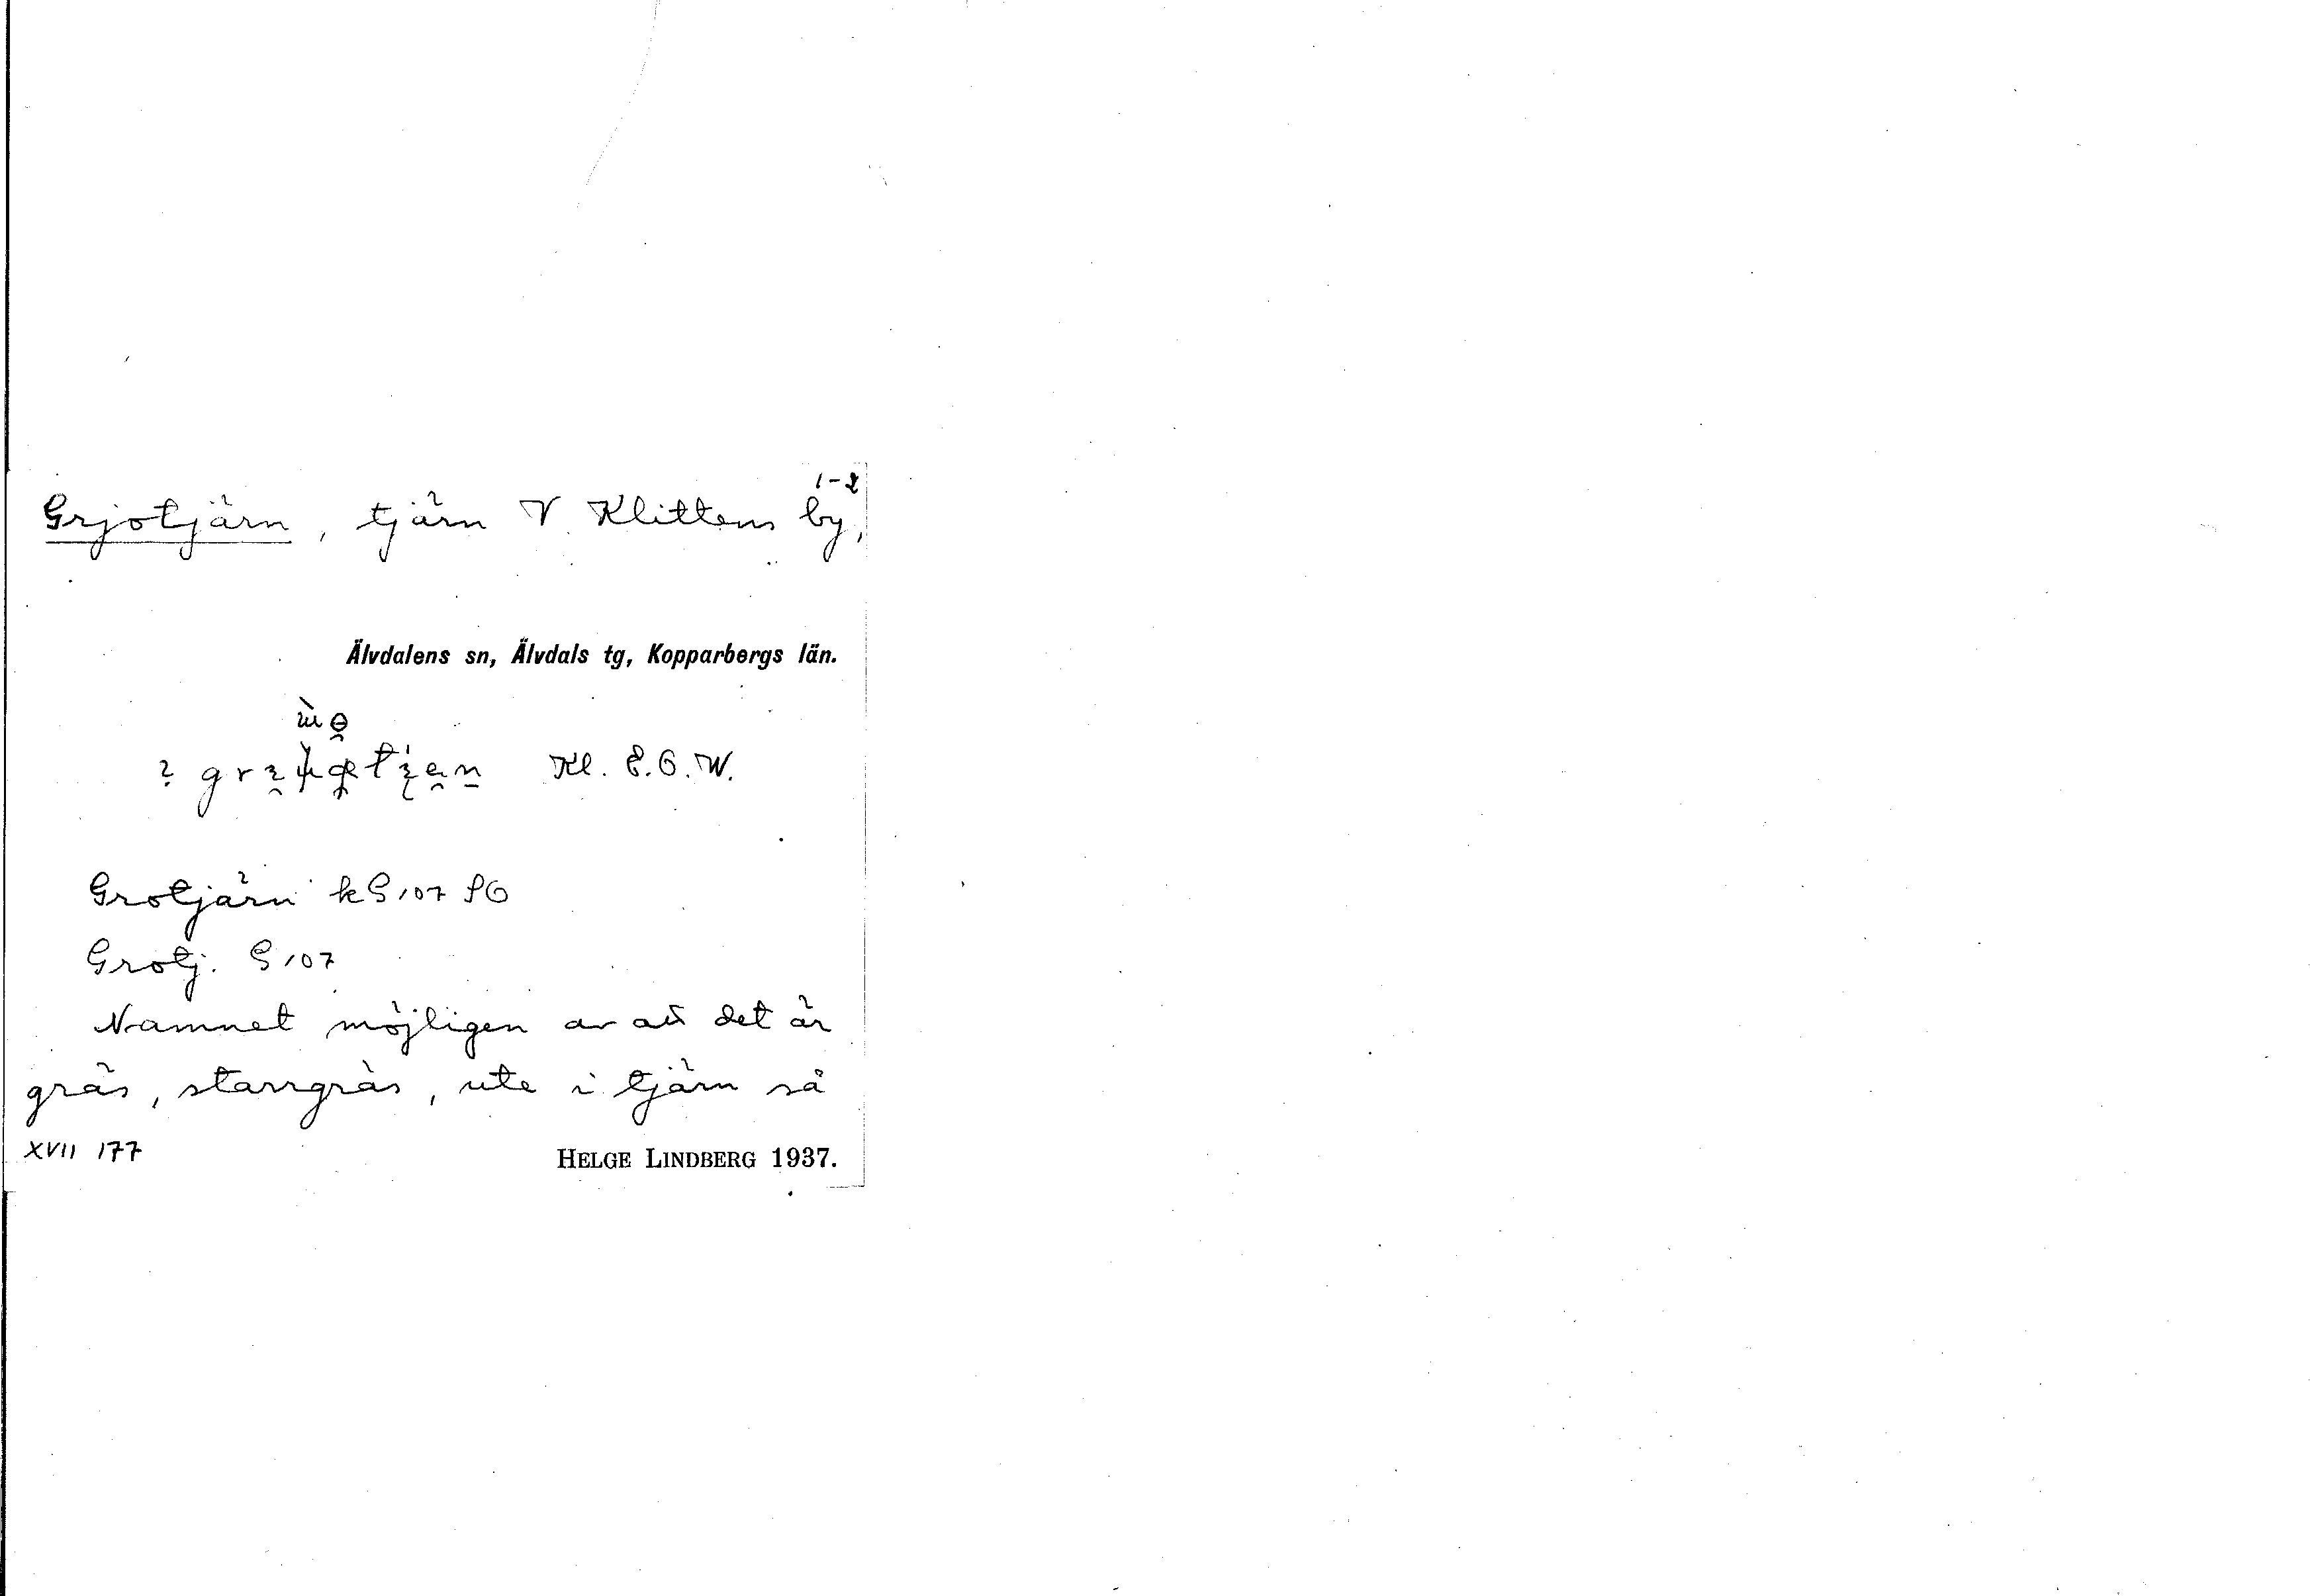 1-2
Grjotjärn, tjärn V Klittens by,
Älvdalens sn, Älvdals tg, Kopparbergs län.
Kl. E.O.W.
Grotjärn kG107 SO
Grotj. G107
Namnet möjligen av att det är
gräs, starrgräs, ute i tjärn så
XVII 177
HELGE LINDBERG 1937.